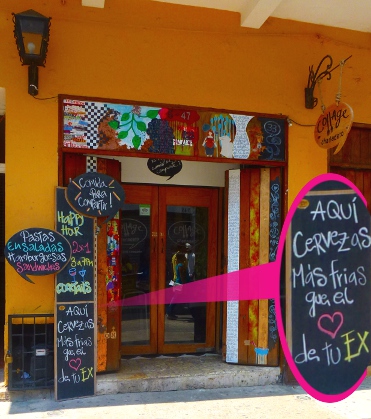 Collage
Comida
para
Compartir
Pastas
Ensaladas
Hamburguesas
Sandwiches
Happy
Hour
2x1
Cocktails
AQUÍ
Cervezas
Más frias
que el
de tu EX
AQUÍ
Cervezas
Más frias
que, el
de tu EX